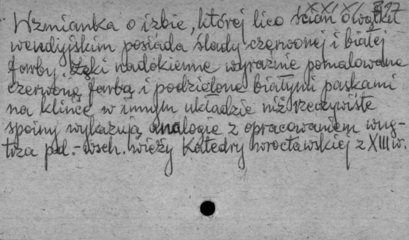 XXI/XI 27
Wzmianka o izbie, której lico ścian o wątku
wendyjskim posiada ślady czerwonej i białej
farby. Łęki nadokienne wyraźnie pomalowane
czerwoną farbą i podzielone białymi paskami
na klińce w innym układzie niż rzeczywiste
spoiny wykazują analogie z opracowaniem wnę-
trza płd.-wsch. wieży Katedry wrocławskiej z XIII w.